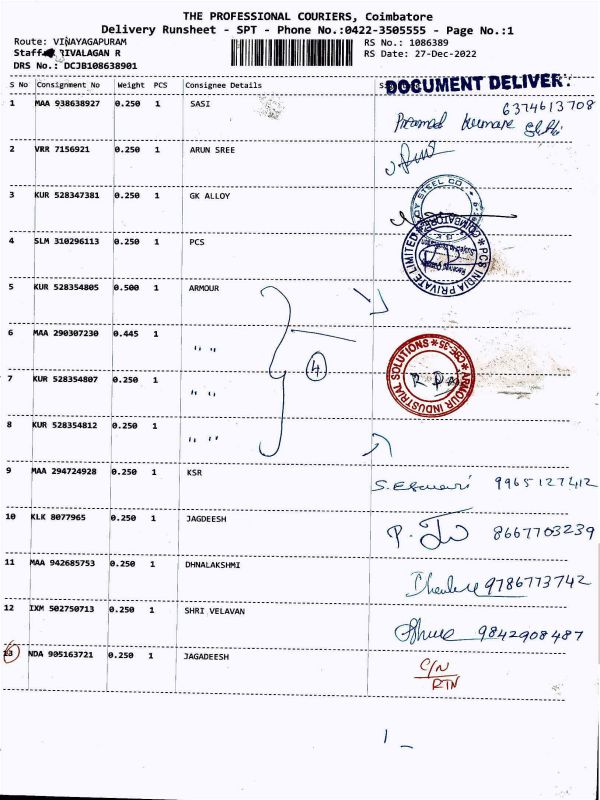 THE PROFESSIONAL COURIERS, Coimbatore
Delivery Runsheet - SPT - Phone No.:0422-3505555 - Page No.:1
Route: VINAYAGAPURAM
RS No.: 1086389
Staff: RIVALAGAN R
RS Date: 27-Dec-2022
DRS No.: DCJB108638901
DOCUMENT DELIVER
S No Consignment No Weight PCS Consignee Details
1 MAA 938638927 0.250 1 SASI
6374613708
2 VRR 7156921 0.250 1 ARUN SREE
3 KUR 528347381 0.250 1 GK ALLOY
4 SLM 310296113 0.250 1 PCS
PCS INDIA PRIVATE LIMITED
5 KUR 528354805 0.500 1 ARMOUR
6 MAA 290307230 0.445 1 " "
4
7 KUR 528354807 0.250 1 " "
ARMOUR INDUSTRIAL SOLUTIONS * CBE-35 *
8 KUR 528354812 0.250 1 " "
9 MAA 294724928 0.250 1 KSR
9965127412
10 KLK 8077965 0.250 1 JAGDEESH
8667703239
11 MAA 942685753 0.250 1 DHNALAKSHMI
9786773742
12 IXM 502750713 0.250 1 SHRI VELAVAN
9842908487
13 NDA 905163721 0.250 1 JAGADEESH C/N
RTN